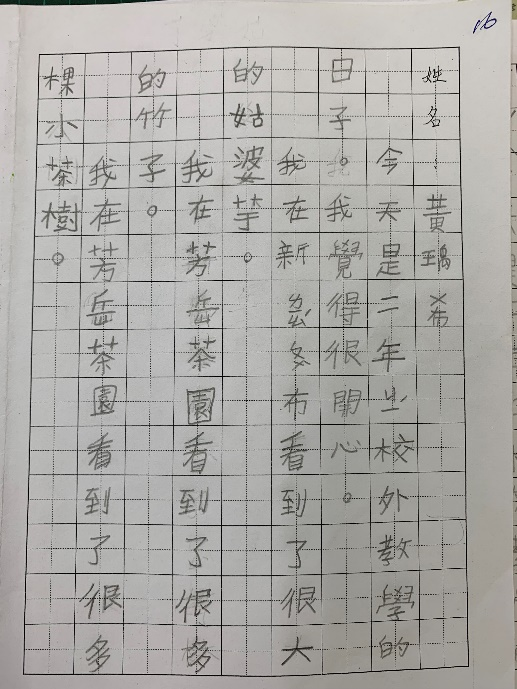 16
姓名:黃瑀希
今天是二年出校外教學的
日子。我覺得很開心。
我在新彭多布看到了很大
的姑婆芋。
我在芳岳茶園看到了很多
的竹子。
我在芳岳茶園看到了很多
棵小茶樹。